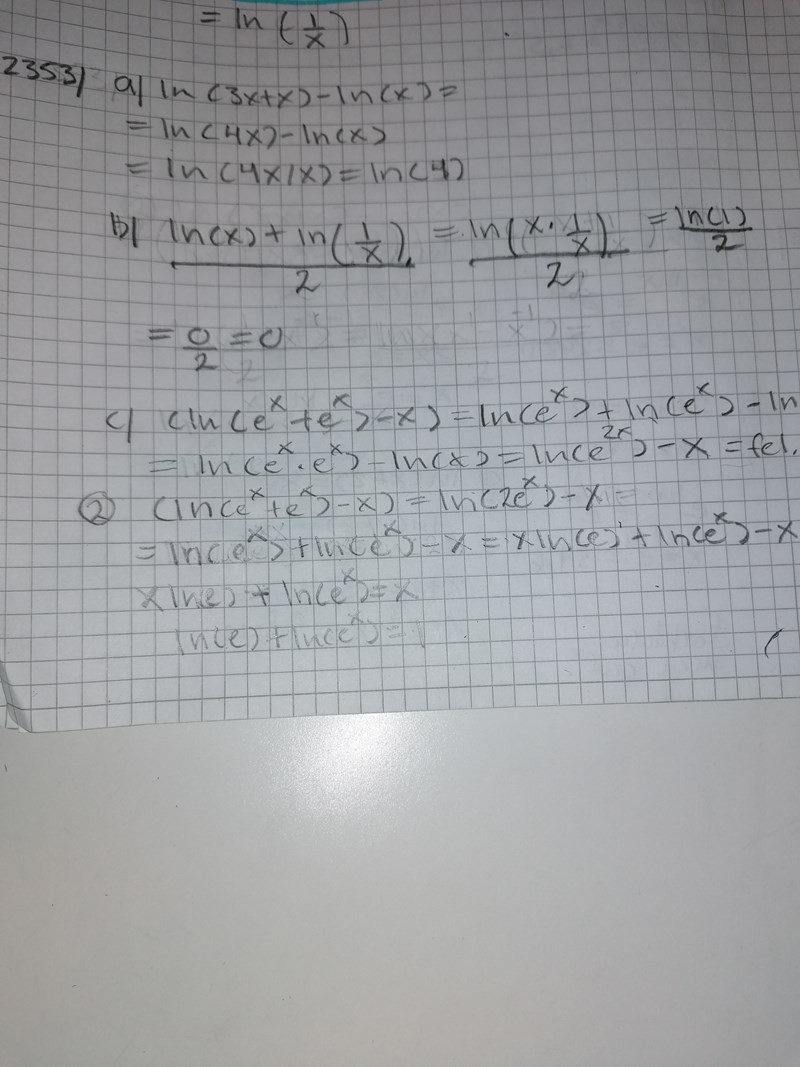 = ln (1/x)
2353) a) ln (3x+x) - ln(x) =
= ln (4x) - ln(x)
= ln (4x/x) = ln(4)
b) (ln(x) + ln(1/x))/2 = ln(x · 1/x)/2 = ln(1)/2
= 0/2 = 0
c) (ln(e^x + e^x) - x) = ln(e^x) + ln(e^x) - ln
= ln(e^x · e^x) - ln(x) = ln(e^2x) - x = fel.
② (ln(e^x + e^x) - x) = ln(2e^x) - x =
= ln(e^x) + ln(e^x) - x = x ln(e) + ln(e^x) - x
x ln(e) + ln(e^x) = x
ln(e) + ln(e^x) = 1
(